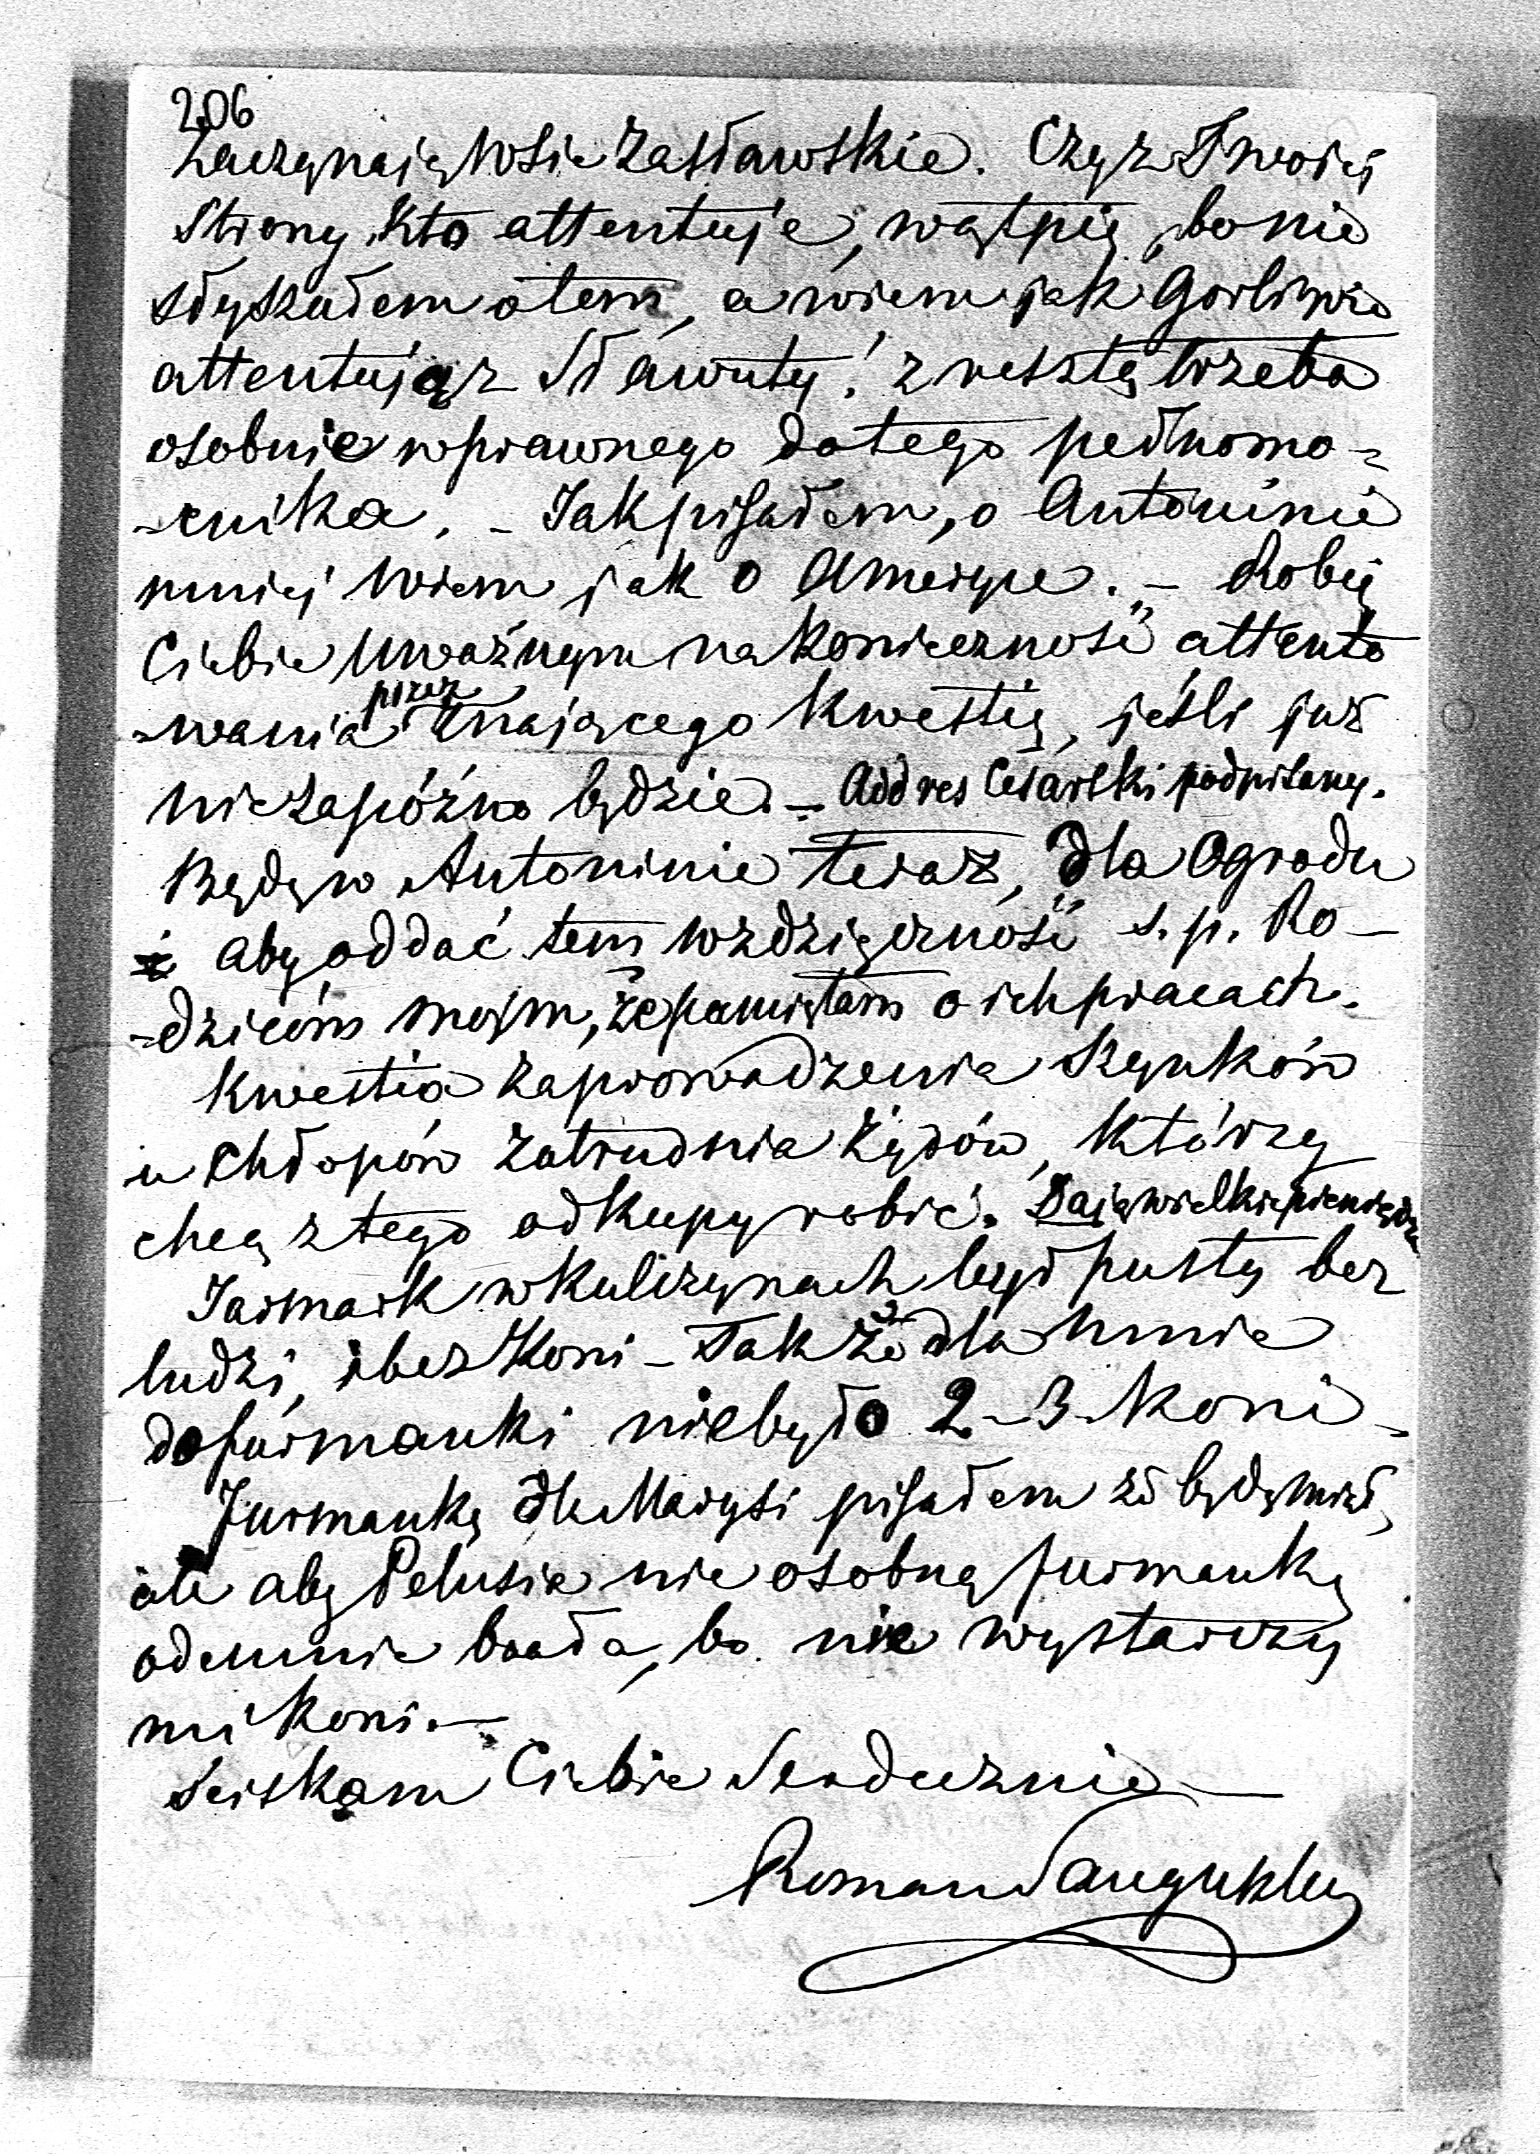 206
Zaczynają wsie Zasławskie. Czy z Twojej
Strony kto attentuje, wątpię, bo nie
słyszałem o tem, a wiem jak Gorliwie
attentują z Sławuty! zresztą trzeba
osobnie wprawnego do tego pełnomo-
-cnika. – Jak pisałem, o Antoninie
mniej wiem jak o Ameryce. – Robię
Ciebie Uważnym na koniecznosć attento
-wania przez znającego kwestię, jeśli już
nie zapóźno będzie. – Addres Cesarski podpisany.
Będę w Antoninie teraz, dla Ogrodu
i aby oddać tem wzdzięcznosć s. p. Ro-
-dzicom mojm, że pamiętam o ich pracach.
Kwestia zaprowadzenia Szynków
u chłopów zatrudnia Żydów, którzy
chcą z tego odkupy robić. Dają wielkie pieniądze
Jarmark w Kulczynach był pusty bez
ludzi, i bez Koni – Także dla mnie
do furmanki nie było 2-3 koni –
Furmankę dla Marysi pisałem że będę miał,
ale aby Pelusia nie osobną furmankę
odemnie brała, bo nie wystarczy
mi koni. –
Sciskam Ciebie Serdecznie –
Roman Sanguszko